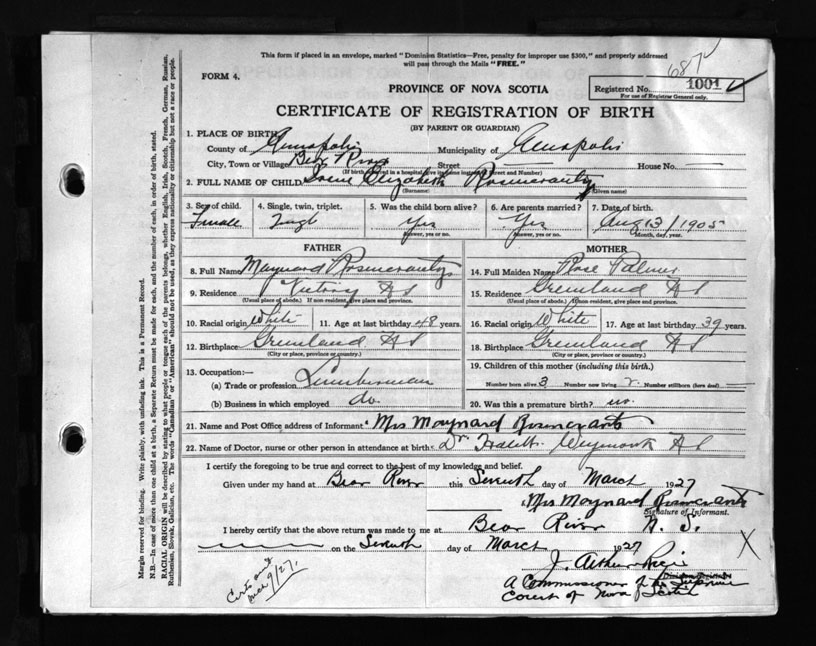 This form if placed in an envelope, marked "Dominion Statistics—Free, penalty for improper use $300," and properly addressed
will pass through the Mails "FREE."
687
FORM 4.
PROVINCE OF NOVA SCOTIA
Registered No. 1001
For use of Registrar General only.
CERTIFICATE OF REGISTRATION OF BIRTH
(BY PARENT OR GUARDIAN)
1. PLACE OF BIRTH
County of Annapolis Municipality of Annapolis
City, Town or Village Bear River Street House No.
(If birth occurred in a hospital, give its name instead of Street and Number)
2. FULL NAME OF CHILD Elizabeth Rosencrantz
(Surname) (Given name)
3. Sex of child. Female
4. Single, twin, triplet. Single
5. Was the child born alive? Yes
Answer, yes or no.
6. Are parents married? Yes
Answer, yes or no.
7. Date of birth. Aug 13/1905
Month, day, year.
FATHER
8. Full Name Maynard Rosencrantz
9. Residence Victory N S
(Usual place of abode.) If non resident, give place and province.
10. Racial origin White 11. Age at last birthday 48 years.
12. Birthplace Greenland N S
(City or place, province or country.)
13. Occupation:—
(a) Trade or profession Lumberman
(b) Business in which employed do
MOTHER
14. Full Maiden Name Palmer
15. Residence Greenland N S
(Usual place of abode.) If non resident, give place and province.
16. Racial origin White 17. Age at last birthday 39 years.
18. Birthplace Greenland N S
(City or place, province or country.)
19. Children of this mother (including this birth.)
Number born alive 3 Number now living 2 Number stillborn (born dead) —
20. Was this a premature birth? no.
21. Name and Post Office address of Informant: Mrs Maynard Rosencrantz
22. Name of Doctor, nurse or other person in attendance at birth: Dr Weymouth N S
I certify the foregoing to be true and correct to the best of my knowledge and belief.
Given under my hand at Bear River this Seventh day of March 1927
Mrs Maynard Rosencrantz
Signature of Informant.
I hereby certify that the above return was made to me at Bear River N. S.
on the Seventh day of March 1927
X
J. Arthur
A Commissioner of the Supreme
Court of Nova Scotia
Mch 9/27.
Margin reserved for binding. Write plainly, with unfading ink. This is a Permanent Record.
N.B.—In case of more than one child at a birth, a Separate Return must be made for each, and the number of each, in order of birth, stated.
RACIAL ORIGIN will be described by stating to what people or tongue each of the parents belongs, whether English, Irish, Scotch, French, German, Russian,
Ruthenian, Slovak, Galician, etc. The words "Canadian" or "American" should not be used, as they express nationality or citizenship but not a race or people.